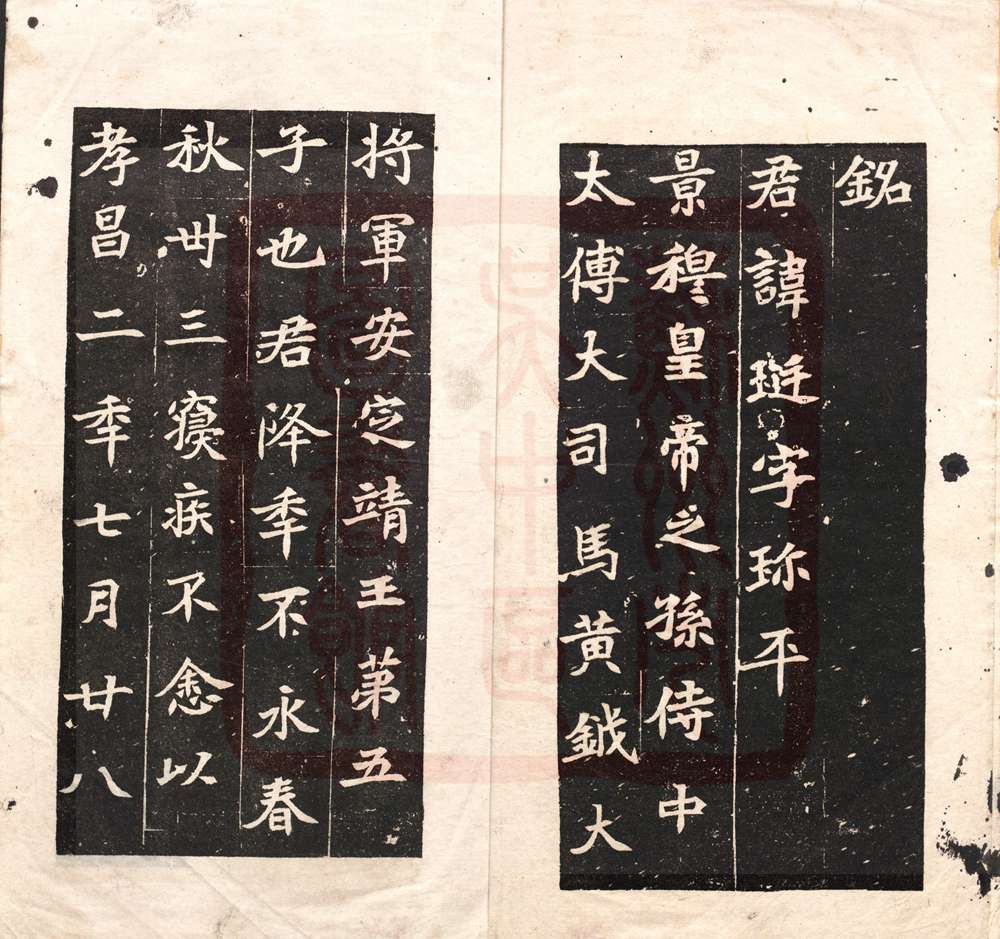 銘
君諱珽字珎平
景穆皇帝之孫侍中
太傅大司馬黃鉞大
將軍安定靖王第五
子也君降秊不永春
秋丗三寢疾不悆以
孝昌二秊七月廿八